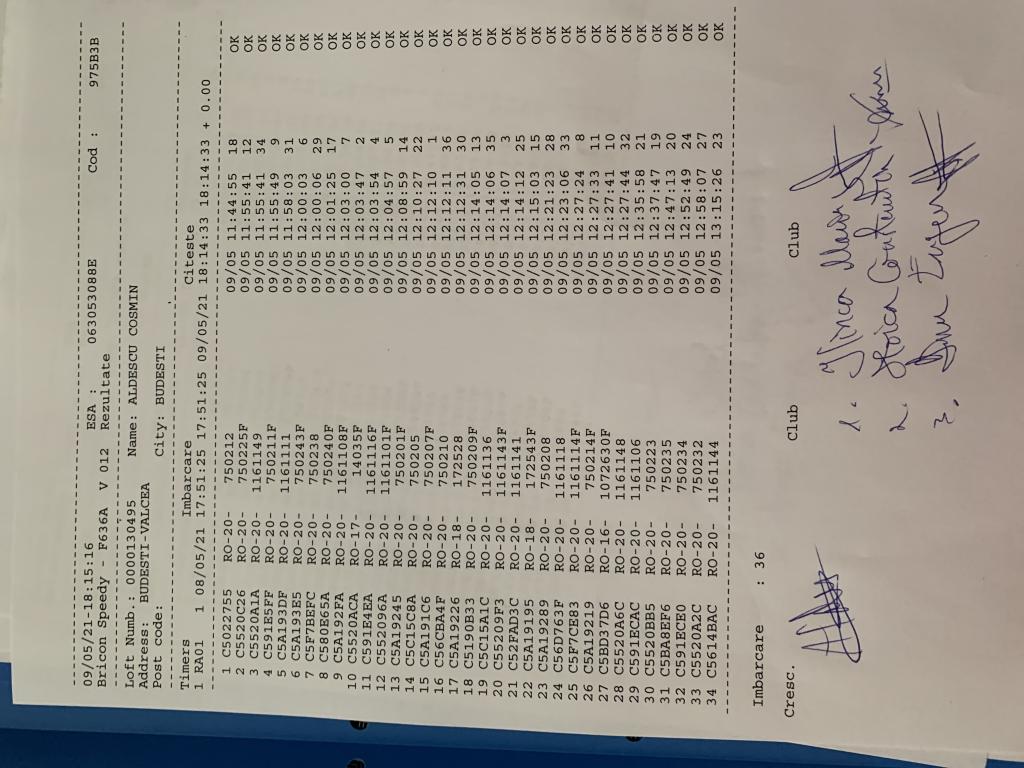 09/05/21-18:15:16
Bricon Speedy - F636A V 012 ESA : 063053088E Cod : 975B3B
Rezultate
Loft Numb.: 0000130495 Name: ALDESCU COSMIN
Address: BUDESTI-VALCEA
Post code: City: BUDESTI
Timers Imbarcare Citeste
1 RA01 1 08/05/21 17:51:25 17:51:25 09/05/21 18:14:33 18:14:33 + 0.00
1 C5022755 RO-20- 750212 09/05 11:44:55 18 OK
2 C5520C26 RO-20- 750225F 09/05 11:55:41 12 OK
3 C5520A1A RO-20- 1161149 09/05 11:55:41 34 OK
4 C591E5FF RO-20- 750211F 09/05 11:55:49 9 OK
5 C5A193DF RO-20- 1161111 09/05 11:58:03 31 OK
6 C5A193E5 RO-20- 750243F 09/05 12:00:03 6 OK
7 C5F7BEFC RO-20- 750238 09/05 12:00:06 29 OK
8 C580E65A RO-20- 750240F 09/05 12:01:25 17 OK
9 C5A192FA RO-20- 1161108F 09/05 12:03:00 7 OK
10 C5520ACA RO-17- 14035F 09/05 12:03:47 2 OK
11 C591E4EA RO-20- 1161116F 09/05 12:03:54 4 OK
12 C552096A RO-20- 1161101F 09/05 12:04:57 5 OK
13 C5A19245 RO-20- 750201F 09/05 12:08:59 14 OK
14 C5C15C8A RO-20- 750205 09/05 12:10:27 22 OK
15 C5A191C6 RO-20- 750207F 09/05 12:12:10 1 OK
16 C56CBA4F RO-20- 750210 09/05 12:12:11 36 OK
17 C5A19226 RO-18- 172528 09/05 12:12:31 30 OK
18 C5190B33 RO-20- 750209F 09/05 12:14:05 13 OK
19 C5C15A1C RO-20- 1161136 09/05 12:14:06 35 OK
20 C55209F3 RO-20- 1161143F 09/05 12:14:07 3 OK
21 C52FAD3C RO-20- 1161141 09/05 12:14:12 25 OK
22 C5A19195 RO-18- 172543F 09/05 12:15:03 15 OK
23 C5A19289 RO-20- 750208 09/05 12:21:23 28 OK
24 C56D763F RO-20- 1161118 09/05 12:23:06 33 OK
25 C5F7CE83 RO-20- 1161114F 09/05 12:27:24 8 OK
26 C5A19219 RO-20- 750214F 09/05 12:27:33 11 OK
27 C5BD37D6 RO-16- 1072630F 09/05 12:27:41 10 OK
28 C5520A6C RO-20- 1161148 09/05 12:27:44 32 OK
29 C591ECAC RO-20- 1161106 09/05 12:35:58 21 OK
30 C5520BB5 RO-20- 750223 09/05 12:37:47 19 OK
31 C5BA8EF6 RO-20- 750235 09/05 12:47:13 20 OK
32 C591ECE0 RO-20- 750234 09/05 12:52:49 24 OK
33 C5520A2C RO-20- 750232 09/05 12:58:07 27 OK
34 C5614BAC RO-20- 1161144 09/05 13:15:26 23 OK
Imbarcare : 36
Cresc. Club Club
1.
2. Stoica
3.